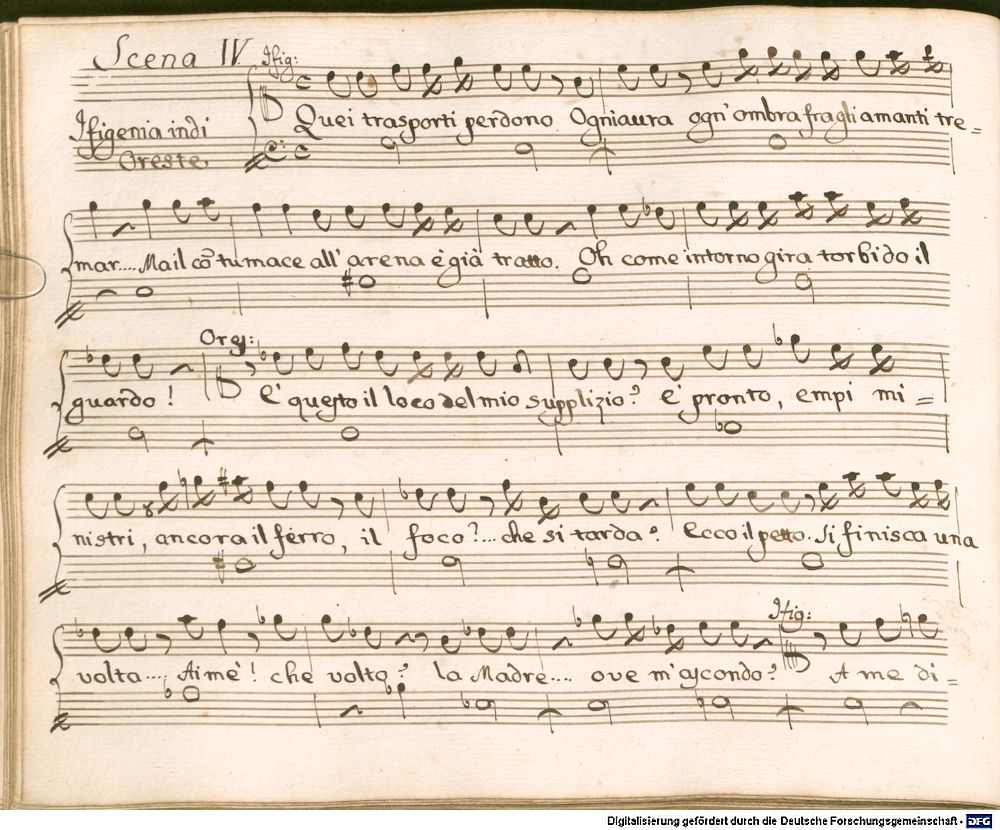 Scena IV. Ifig:
Ifigenia indi
Oreste.
Quei trasporti perdono. Ogni aura ogn' ombra fra gli amanti tre=
mar.... Ma il cõtumace all' arena è già tratto. Oh come intorno gira torbido il
Ores:
guardo! E' questo il loco del mio supplizio? è pronto, empi mi=
nistri, ancora il ferro, il foco?... che si tarda? Ecco il petto. Si finisca una
Ifig:
volta.... Aimè! che volto? la Madre.... ove m' ascondo? A me di=
Digitalisierung gefördert durch die Deutsche Forschungsgemeinschaft - DFG